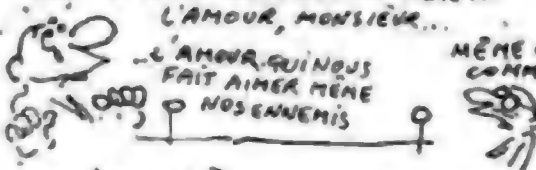 L'AMOUR, MONSIEUR...
...L'AMOUR QUI NOUS
FAIT AIMER MÊME
NOS ENNEMIS
MÊME
COMM